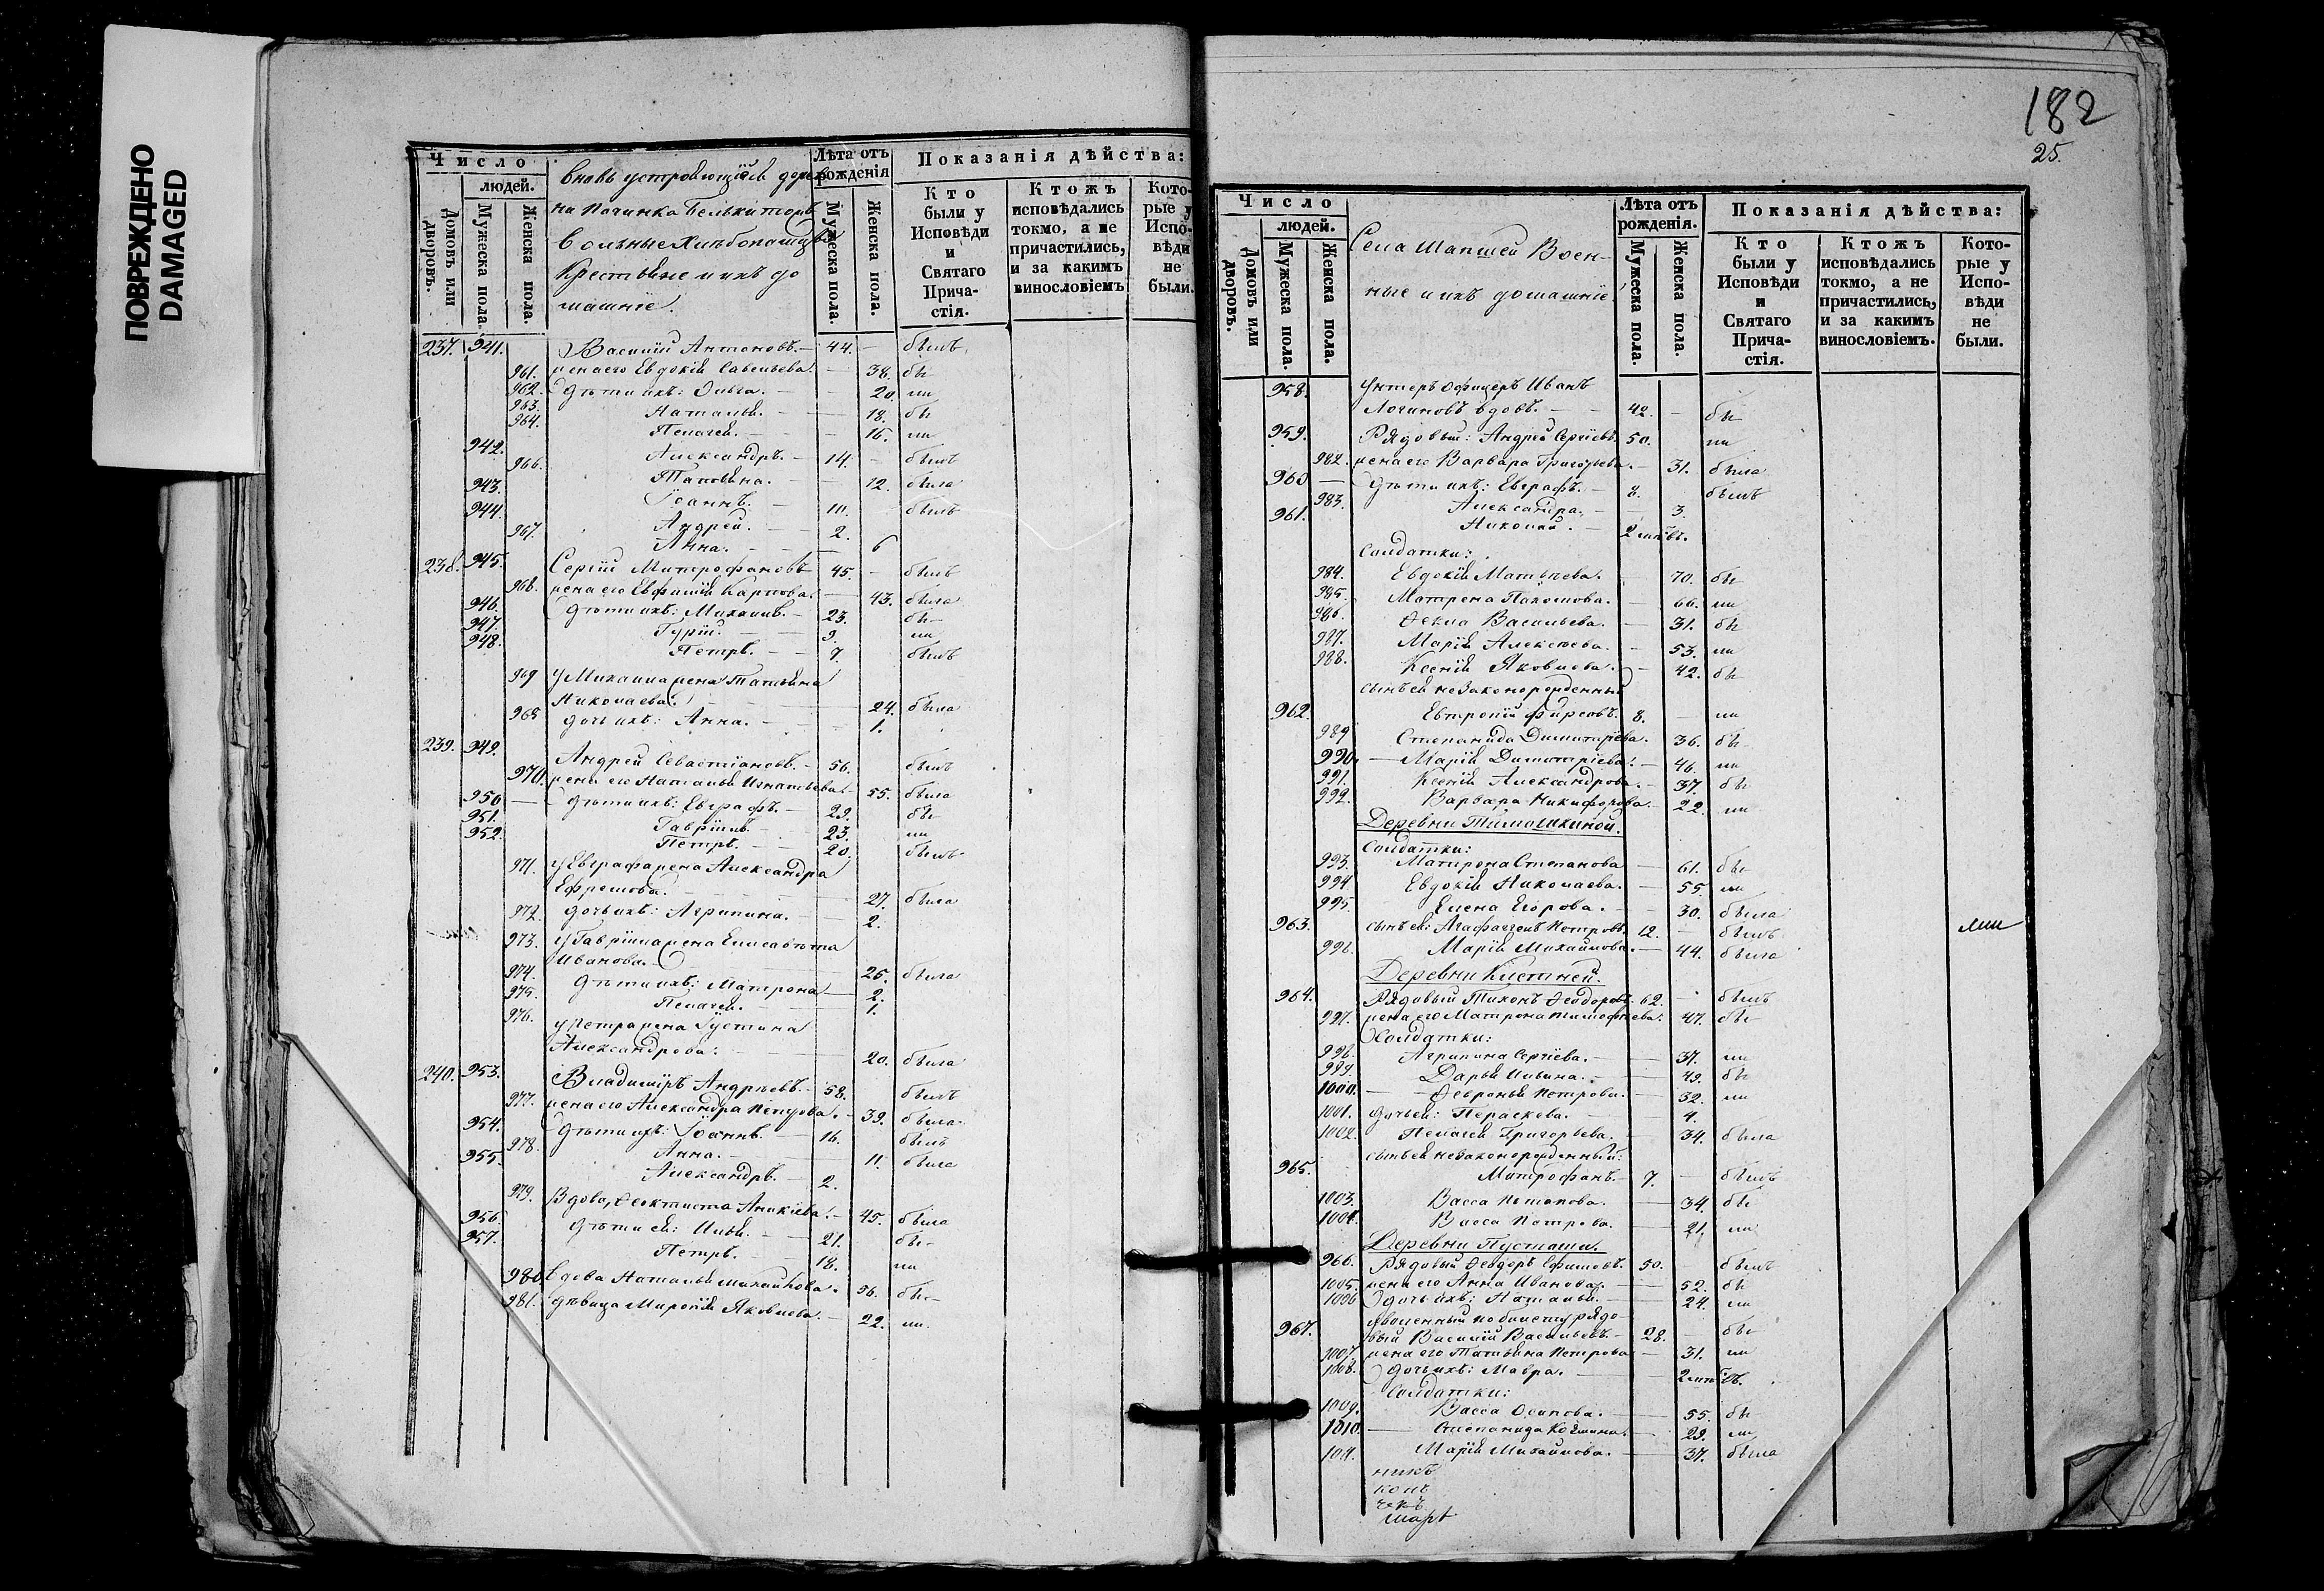 ПОВРЕЖДЕНО
DAMAGED
Число
людей.
Домовъ или дворовъ.
Мужеска пола.
Женска пола.
Вновь устроющейся дерев
ни Починка
вольные хлѣбопашцы
Крестьяне и ихъ до
машніе.
Лѣта отъ рожденія
Мужеска пола.
Женска пола.
Показанія дѣйства:
Кто были у Исповѣди и Святаго Прича-стія.
Ктожъ исповѣдались токмо, а не причастились, и за какимъ винословіемъ
Кото-рые у Испо-вѣди не были.
237. 941. Василий Антоновъ. — 44. — былъ
961. жена его Евдокія Савельева. — 38. бы
962. Дѣти ихъ: Ольга. — 20. ли
963. Наталья. — 18. бы
964. Пелагея. — 16. ли
942. Александръ. — 14. — былъ
966. Татьяна. — 12. была
943. Іоаннъ. — 10. былъ
944. Андрей. — 2.
967. Анна. — 6
238. 945. Сергій Митрофановъ 45. — былъ
968. жена его Евфимія Карпова. — 43. была
946. Дѣти ихъ: Михаилъ. — 23. бы
947. Гурій. — 9. ли
948. Петръ. — 7. былъ
969 у Михаила жена Татьяна
Николаева. — 24. была
968 дочь ихъ: Анна. — 1.
239. 949. Андрей Севастіановъ. — 56. былъ
970. жена его Наталья Игнатьева. 55. была
950 — Дѣти ихъ: Евграфъ. — 29. бы
951. Гавріилъ — 23. ли
952. Петръ. — 20. былъ
971. у Евграфа жена Александра
Ефремова. — 27. была
972. дочь ихъ: Агрипина. — 2.
973. у Гавріила жена Елисавета
Иванова. — 25. была
974. Дѣти ихъ: Матрона — 2.
975. Пелагея. — 1.
976. у Петра жена Іустина
Александрова. — 20. была
240. 953. Владиміръ Андреевъ. — 58. былъ
977. жена его Александра Петрова. — 39. была
954. Дѣти ихъ: Іоаннъ. — 16. былъ
978. Анна. — 11. была
955. Александръ. — 2.
979. Вдова, Феоктиста Аникіева. — 45. была
956. Дѣти ея: Илья. — 21. бы
957. Петръ. — 18. ли
980. Вдова Наталья Михайлова. 56. бы
981. дѣвица Миропія Яковлева. — 22. ли.
182
25.
Число
людей.
Домовъ или дворовъ.
Мужеска пола.
Женска пола.
Села Шапшей Воен-
ные и ихъ домашніе.
Лѣта отъ рожденія.
Мужеска пола.
Женска пола.
Показанія дѣйства:
Кто были у Исповѣди и Святаго Прича-стія.
Ктожъ исповѣдались токмо, а не причастились, и за какимъ винословіемъ.
Кото-рые у Испо-вѣди не были.
958. Унтеръ Офицеръ Иванъ
Логиновъ вдовъ. — 42. — бы
959. Рядовый: Андрей Сергіевъ. 50. ли
982. жена его Варвара Григорьева. — 31. была
960 — Дѣти ихъ: Евграфъ. — 8. былъ
983. Александра. — 3.
961. Николай. — 2
Солдатки:
984. Евдокія Матвѣева. — 70. бы
985. Матрена Пахомова. — 66. ли
986. Фекла Васильева. — 31. бы
987. Марія Алексѣева. — 53. ли
988. Ксенія Яковлева. — 42. бы
сынъ ея незаконорожденный
962. Евтропій Фирсовъ. 8. — ли
989 Степанида Димитріева. 36. бы
990. — Марія Димитріева. — 46. ли
991. Ксенія Александрова. — 37. бы
992. Варвара Никифорова. — 22. ли
Деревни Тимошкиной.
Солдатки:
993. Матрона Степанова — 61. бы
994 Евдокія Николаева. — 55. ли
995. Елена Егорова. — 30. была
963. сынъ ея: Агафангелъ Петровъ. 12. — былъ
996. Марія Михайлова. — 44. была
ли
Деревни Клетней.
964. Рядовый Тихонъ Феодоровъ. 62. — былъ
997. жена его Матрона Тимофеева. 47. бы
Солдатки:
998. Агрипина Сергіева. — 37. ли
999. Дарья Ильина. — 49. бы
1000. — Февронья Петрова. — 32. ли
1001. дочь ея: Параскева. — 4.
1002. Пелагея Григорьева. — 34. была
сынъ ея незаконорожденный:
965. Митрофанъ. — 7. — былъ
1003. Васса Потапова. — 34. бы
1004. Васса Петрова. — 21. ли
Деревни Пустоши.
966. Рядовый Феодоръ Ефимовъ. 50. — былъ
1005. жена его Анна Иванова. — 52. бы
1006 дочь ихъ: Наталья. — 24. ли
уволенный по билету рядо-
967. вый Василій Васильевъ. — 28. — бы
1007. жена его Татьяна Петрова — 31. ли
1008. дочь ихъ: Мавра. — 2
Солдатки:
1009. Васса Осипова. — 55. бы
1010. — Степанида Козмина. — 29. ли
1011. Марія Михайлова. — 37. была